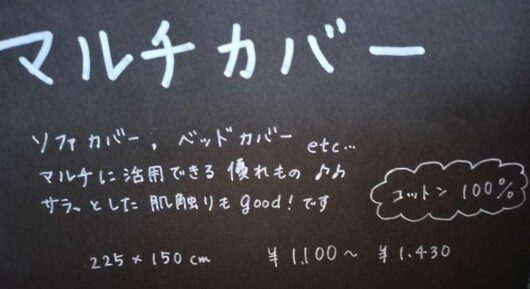 マルチカバー
ソファカバー, ベッドカバー etc...
マルチに活用できる優れもの♪♪
サラッとした肌触りもgood!です
コットン 100%
225×150cm ¥1,100〜 ¥1.430